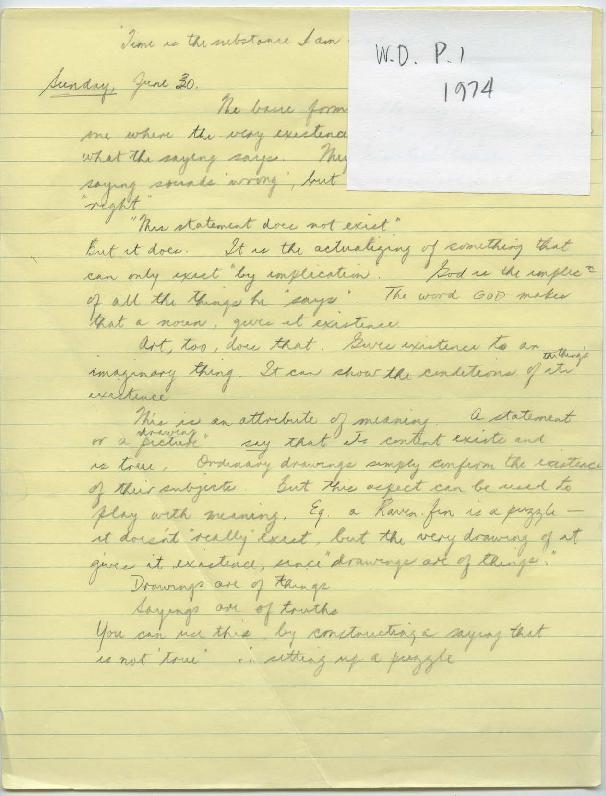 "Time is the substance I am
W.D. P.1
1974
Sunday, June 30.
The basic form
me where the very existence
what the saying says. They
saying sounds 'wrong', but
"right"
"This statement does not exist"
But it does. It is the actualizing of something that
can only exist "by implication. God is the implic=
of all the things he "says" The word GOD makes
that a noun, gives it existence
Art, too, does that. Gives existence to an
imaginary thing. It can show the conditions of its
the thing's
existence
This is an attribute of meaning. A statement
or a "picture" say that its content exists and
drawing
is true. Ordinary drawings simply confirm the existence
of their subjects. But this aspect can be used to
play with meaning. Eg. a Raven-fin is a puzzle —
it doesn't "really" exist, but the very drawing of it
gives it existence, since "drawings are of things."
Drawings are of things
Sayings are of truths
You can use this by constructing a saying that
is not 'true' ∴ setting up a puzzle